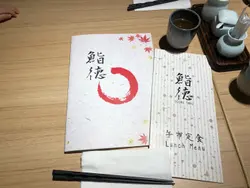 鮨
徳
鮨
徳
午市定食
Lunch Menu